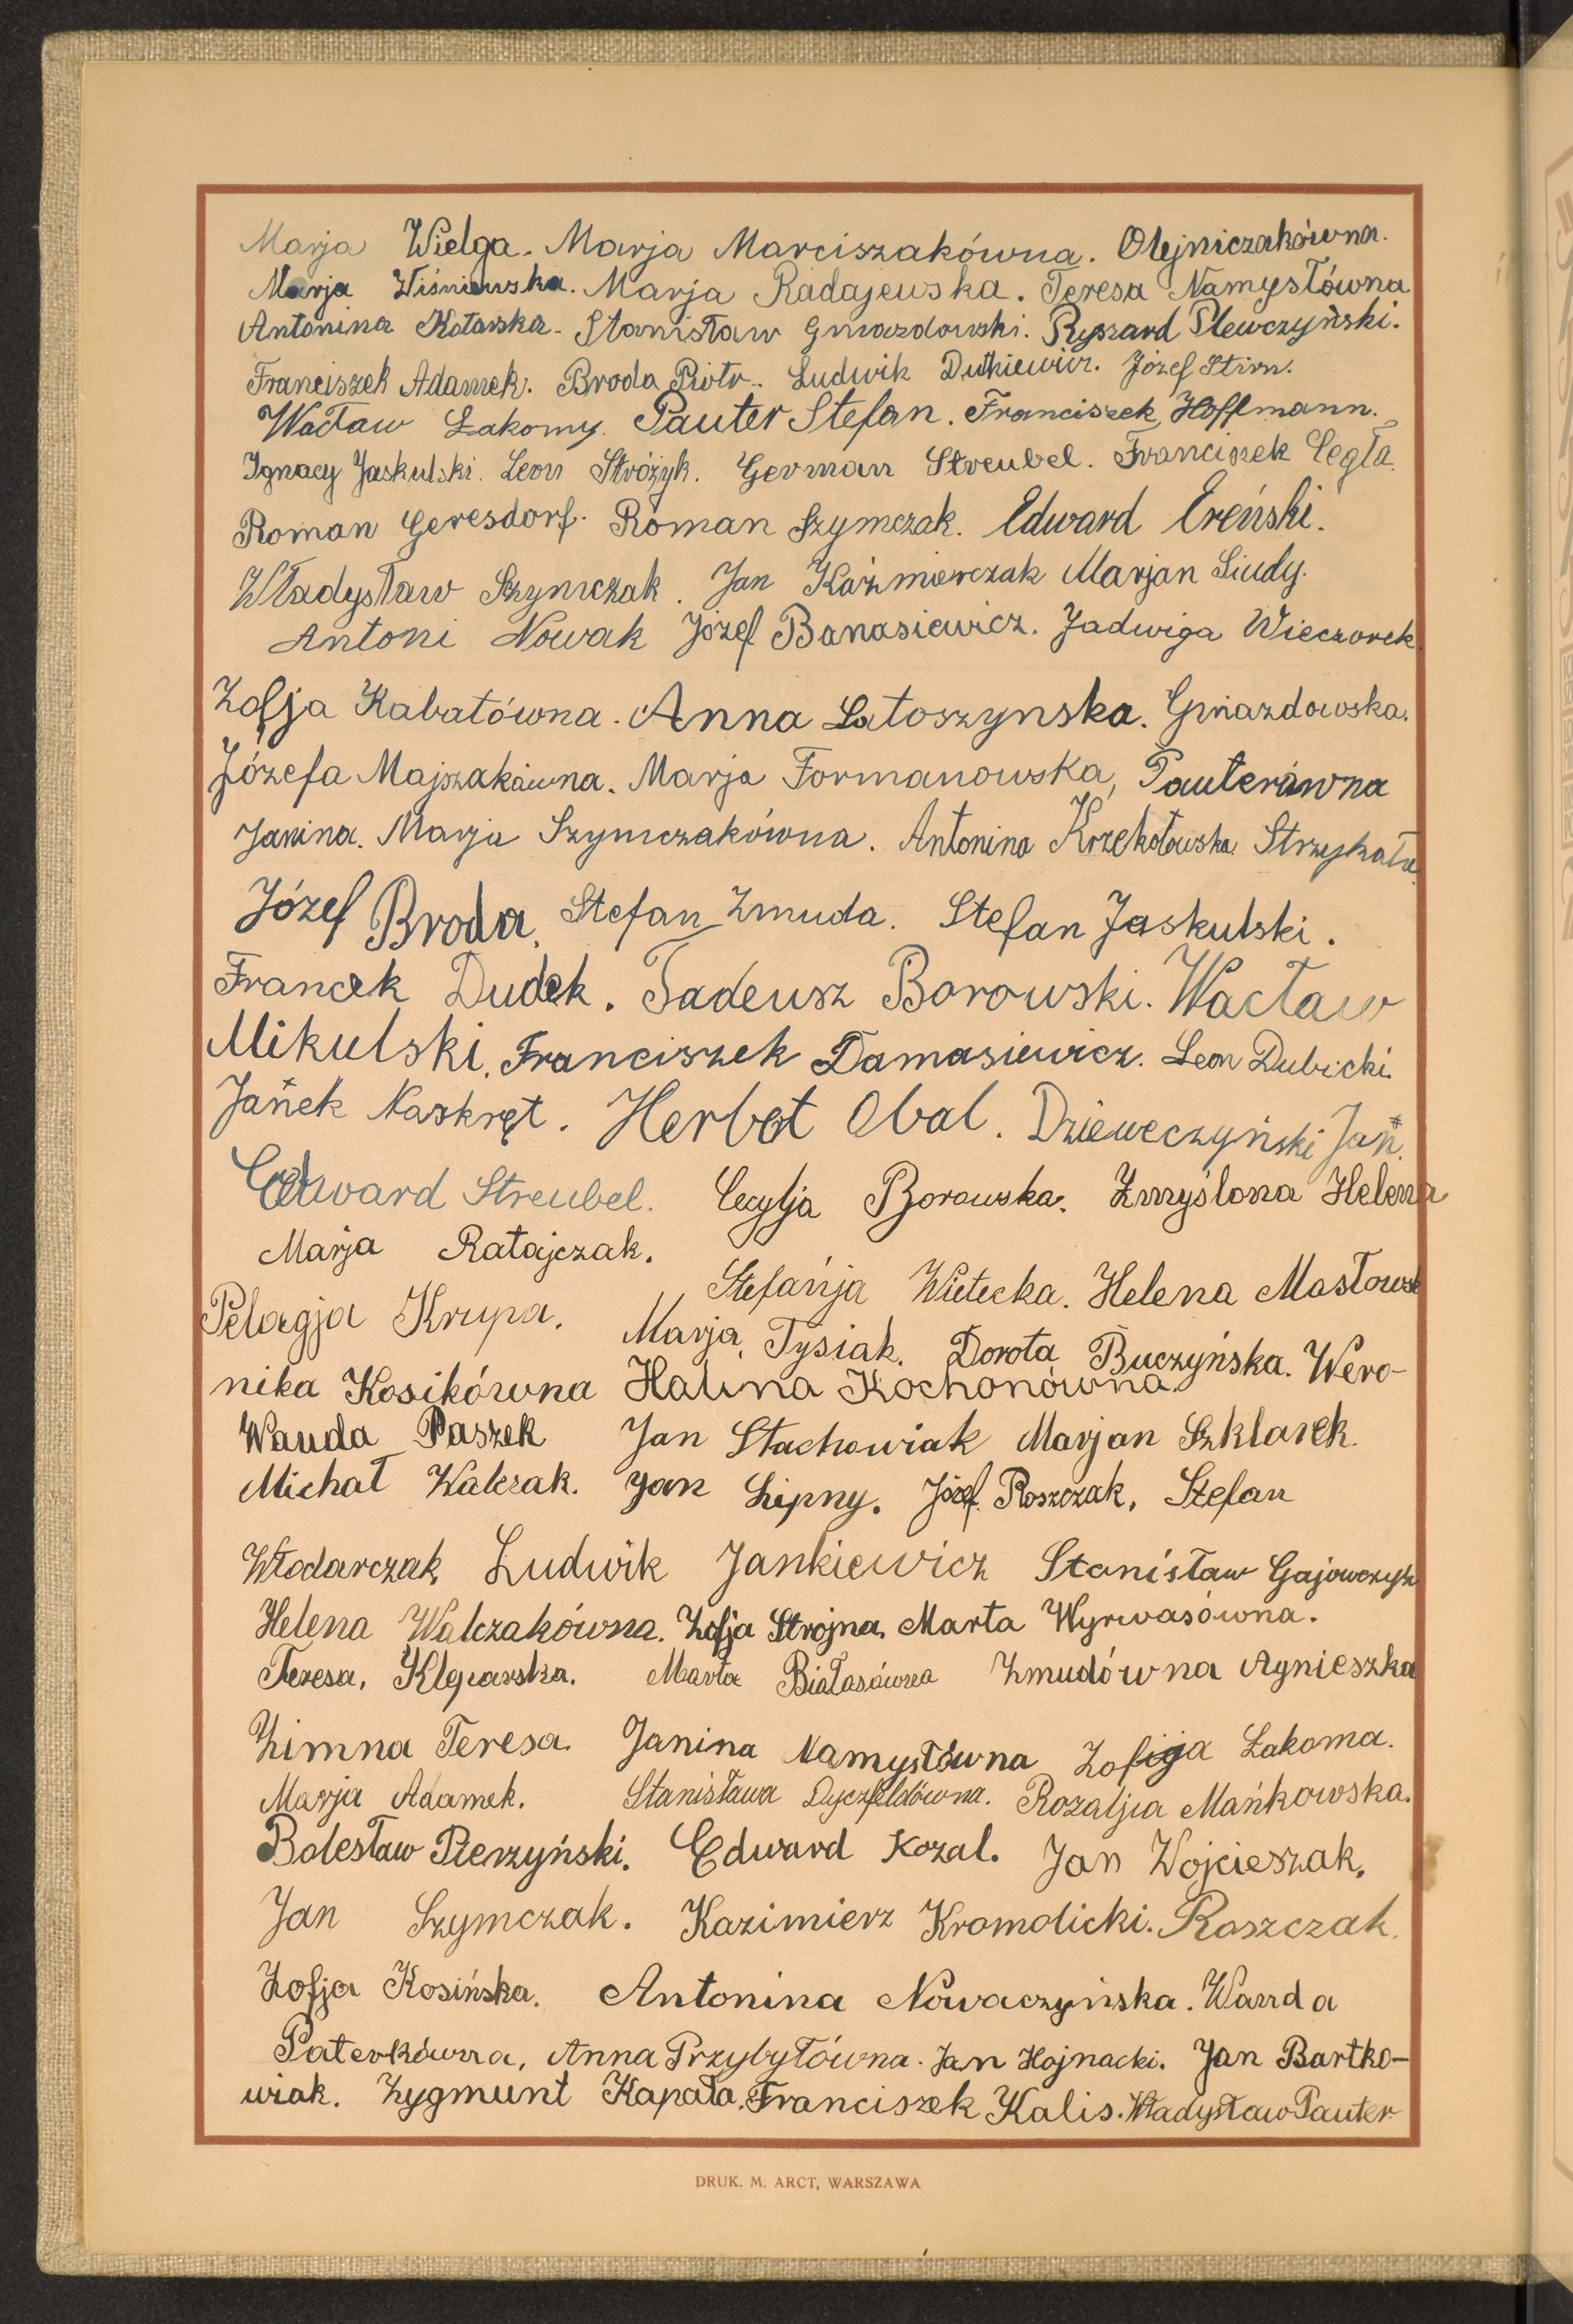 Marja Wielga. Marja Marciszakówna. Olejniczakówna.
Marja Wiśniewska. Marja Radajewska. Teresa Namysłówna
Antonina Kotarska. Stanisław Gniazdowski. Ryszard Plewczyński.
Franciszek Adamek. Broda Piotr. Ludwik Dutkiewicz. Józef Stirn.
Wacław Łakomy. Pauter Stefan. Franciszek Hoffmann.
Ignacy Jaskulski. Leon Stróżyk. German Streubel. Franciszek Cegła.
Roman Geresdorf. Roman Szymczak. Edward Ereński.
Władysław Szymczak. Jan Kaźmierczak Marjan Siudy.
Antoni Nowak Józef Banasiewicz. Jadwiga Wieczorek.
Zofja Kabatówna. Anna Latoszynska. Gniazdowska.
Józefa Majszakówna. Marja Formanowska, Pauterówna
Janina. Marja Szymczakówna. Antonina Krzekotowska. Strzykała.
Józef Broda. Stefan Zmuda. Stefan Jaskulski.
Francek Dudek. Tadeusz Borowski. Wacław
Mikulski. Franciszek Damasiewicz. Leon Dubicki.
Janek Naskręt. Herbot Obal. Dzieweczyński Jan.
Edward Streubel. Cecylja Borowska. Zmyślona Helena
Marja Ratajczak.
Stefanja Wietecka. Helena Masłowsk
Pelagja Krupa. Marja Tysiak. Dorota Buczyńska. Wero-
nika Kosikówna Halina Kochonówna.
Wanda Paszek Jan Stachowiak Marjan Szklarek.
Michał Walczak. Jan Lipny. Józef Roszczak, Stefan
Włodarczak, Ludwik Jankiewicz Stanisław Gajowczyk
Helena Walczakówna. Zofja Strojna. Marta Wyrwasówna.
Teresa, Kleparska. Marta Białasówna Zmudówna Agnieszka
Zimna Teresa. Janina Namysłówna Zofija Łakoma.
Marja Adamek. Stanisława Dyczfeldówna. Rozalja Mańkowska.
Bolesław Pierzyński. Edward Kozal. Jan Wojcieszak,
Jan Szymczak. Kazimierz Kromolicki. Roszczak.
Zofja Kosińska. Antonina Nowaczyńska. Wanda
Paterkówna, Anna Przybyłówna. Jan Hojnacki. Jan Bartko-
wiak. Zygmunt Kapała. Franciszek Kalis. Władysław Pauter
DRUK. M. ARCT, WARSZAWA